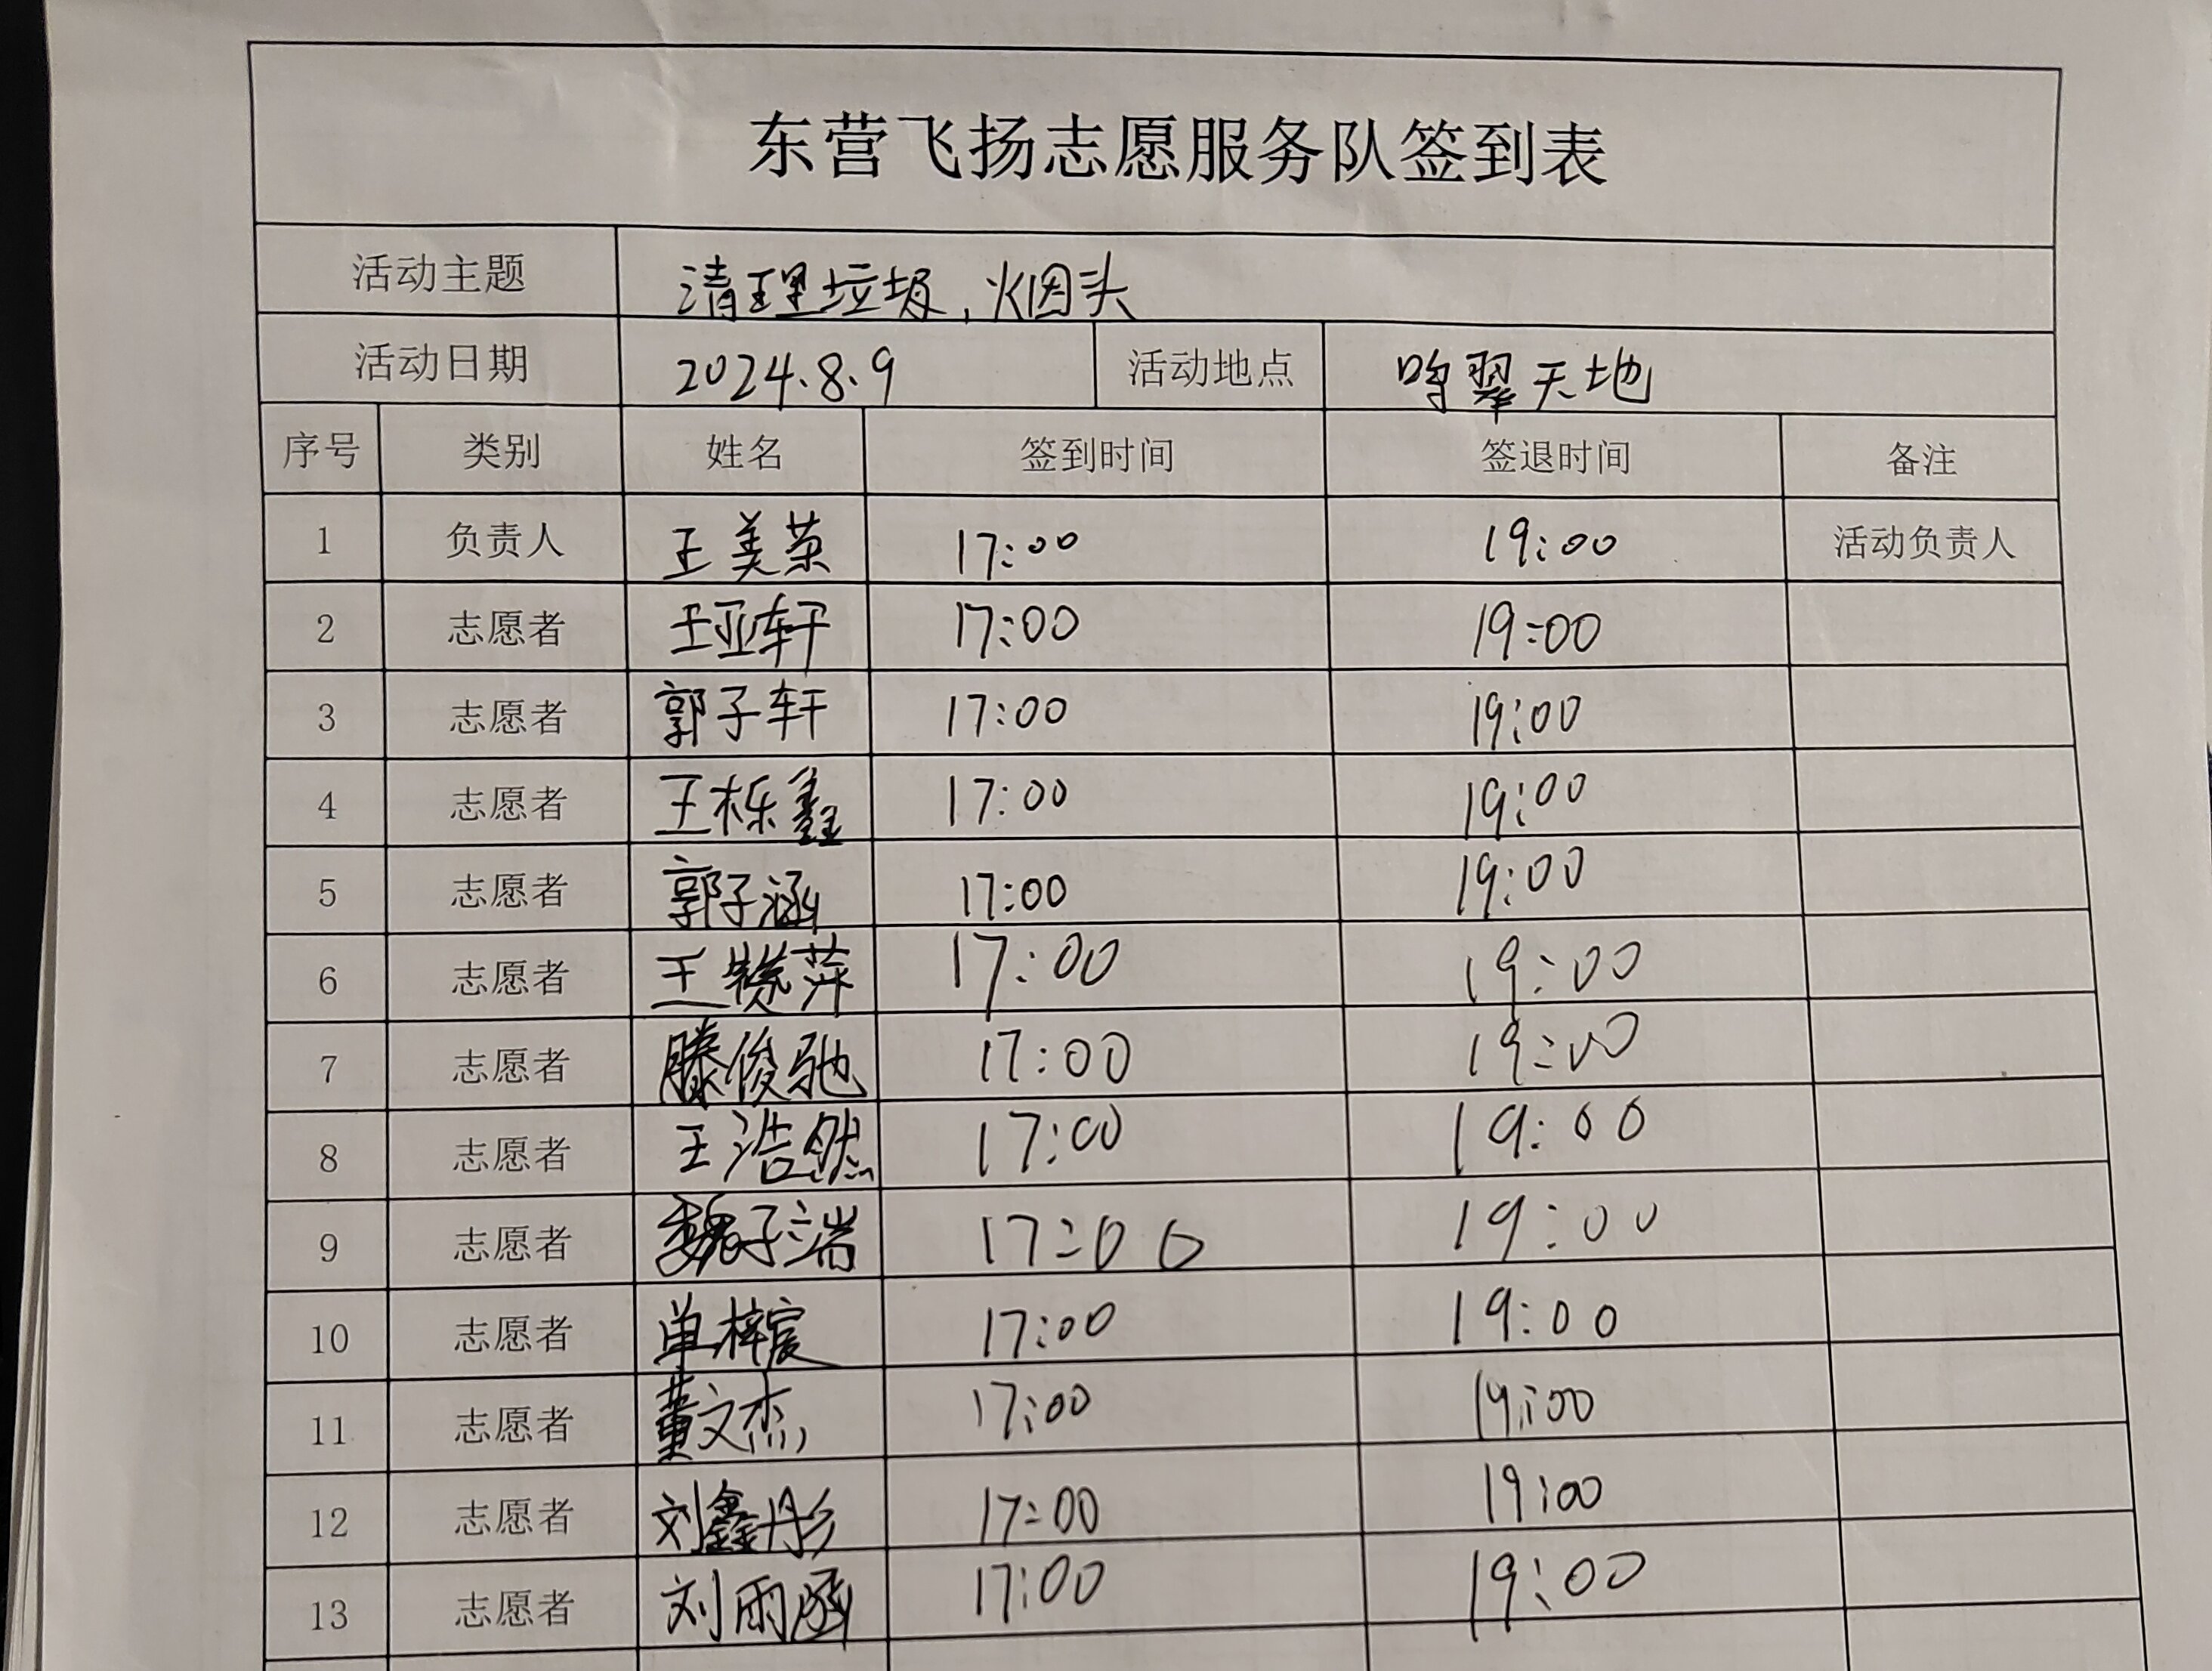 东营飞扬志愿服务队签到表
活动主题 清理垃圾,烟头
活动日期 2024.8.9 活动地点 鸣翠天地
序号 类别 姓名 签到时间 签退时间 备注
1 负责人 王美荣 17:00 19:00 活动负责人
2 志愿者 王亚轩 17:00 19:00
3 志愿者 郭子轩 17:00 19:00
4 志愿者 王栎鑫 17:00 19:00
5 志愿者 郭子涵 17:00 19:00
6 志愿者 王 萍 17:00 19:00
7 志愿者 滕俊驰 17:00 19:00
8 志愿者 王浩然 17:00 19:00
9 志愿者 魏子端 17:00 19:00
10 志愿者 单梓宸 17:00 19:00
11 志愿者 董文杰 17:00 19:00
12 志愿者 刘鑫彤 17:00 19:00
13 志愿者 刘雨涵 17:00 19:00